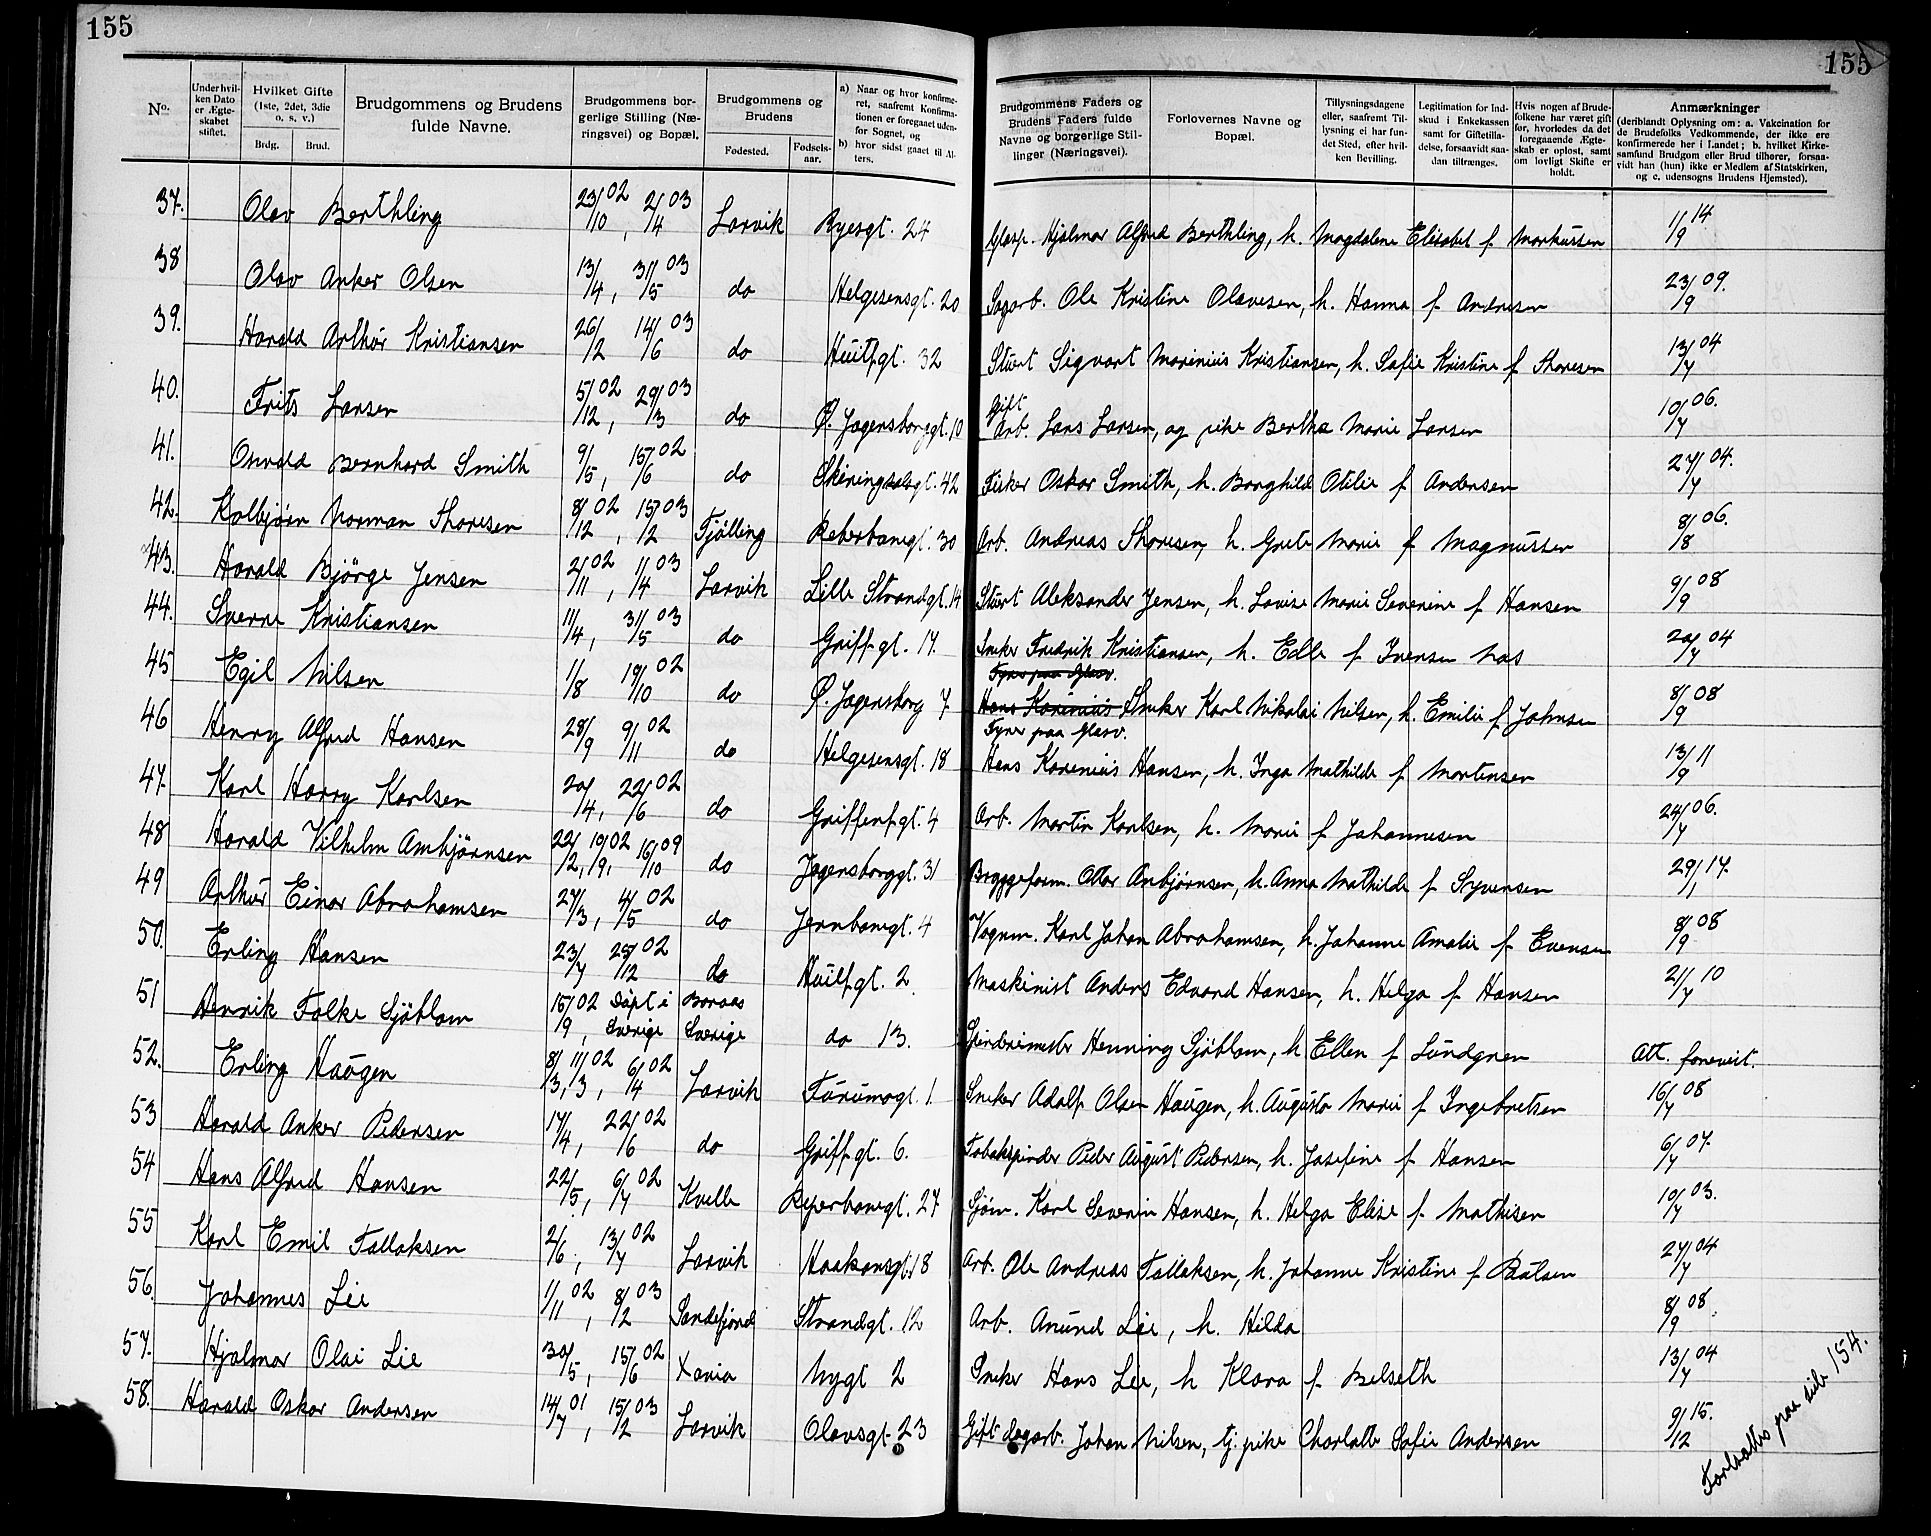 155
155
No.
Under hvilken Dato er Ægteskabet stiftet.
Hvilket Gifte (1ste, 2det, 3die o. s. v.)
Brdg. Brud.
Brudgommens og Brudens fulde Navne.
Brudgommens borgerlige Stilling (Næringsvei) og Bopæl.
Brudgommens og Brudens
Fødested. Fødselsaar.
a) Naar og hvor konfirmeret, saafremt Konfirmationen er foregaaet udenfor Sognet, og
b) hvor sidst gaaet til Alters.
Brudgommens Faders og Brudens Faders fulde Navne og borgerlige Stillinger (Næringsvei).
Forlovernes Navne og Bopæl.
Tillysningsdagene eller, saafremt Tillysning ei har fundet Sted, efter hvilken Bevilling.
Legitimation for Indskud i Enkekassen samt for Giftetilladelse, forsaavidt saadan tiltrænges.
Hvis nogen af Brudefolkene har været gift før, hvorledes da det foregaaende Ægteskab er opløst, samt om lovligt Skifte er holdt.
Anmærkninger
(deriblandt Oplysning om: a. Vakcination for de Brudefolks Vedkommende, der ikke ere konfirmerede her i Landet; b. hvilket Kirkesamfund Brudgom eller Brud tilhører, forsaavidt han (hun) ikke er Medlem af Statskirken, og c. udensogns Brudens Hjemsted).
37. Olav Berthling 23/10 02, 2/4 03 Larvik Ryesgt. 24 Glasp. Hjalmar Alfred Berthling, h. Magdalene Elisabet f Markussen 1/9 14
38 Olav Anker Olsen 13/4, 31/5 03 do Helgesensgt. 20 Sagarb. Ole Kristine Olavesen, h. Hanna f Andresen 23/9 09.
39. Harald Arthur Kristiansen 26/2 14/6 03 do Huitfgt. 32 Stuert Sigvart Marinius Kristiansen, h. Sofie Kristine f Thoresen 13/7 04
40. Frits Larsen 5/12 02, 29/3 03 do Ø. Jegersborggt. 10 Gift Arb. Lars Larsen, og pike Bertha Marie Larsen 10/7 06.
41. Osvald Bernhard Smith 9/5, 15/6 02 do Skiringssalsgt. 42 Fisker Oskar Smith, h. Borghild Otilie f Andersen 27/7 04.
42. Kolbjørn Norman Thoresen 8/12 02, 15/2 03 Tjølling Reberbanegt. 30 Arb. Andreas Thoresen, h. Grete Marie f Magnussen 8/8 06.
43. Harald Bjørge Jensen 2/11 02, 1/4 03 Larvik Lille Strandgt. 14 Stuert Aleksander Jensen, h. Lovise Marie Severine f Hansen 9/9 08
44. Sverre Kristiansen 11/4, 31/5 03 do Griffgt. 17. Sneker Fredrik Kristiansen, h. Edle f Iversen Nas 20/7 04
Fyrer paa Glasv.
45 Egil Nilsen 1/8 19/10 02 do Ø. Jegersborg 7 Hans Karinius Sneker Karl Nikolai Nilsen, h. Emilie f Johnsen 8/9 08
Fyrer paa Glasv.
46 Henry Alfred Hansen 28/9 9/11 02 do Helgesensgt. 18 Hans Karenius Hansen, h. Inga Mathilde f Mortensen 13/9 11
47. Karl Harry Karlsen 20/4, 22/6 02 do Griffenfgt. 4 Arb. Martin Karlsen, h. Marie f Johannesen 24/7 06.
48 Harald Vilhelm Ambjørnsen 22/2, 10/9 02, 16/10 09 do Jegersborggt. 31 Bryggeform. Otto Anbjørnsen, h. Anna Mathilde f Syvensen 29/1 17.
49 Arthur Einar Abrahamsen 27/3, 4/5 02 do Jernbanegt. 4 Vognm. Karl Johan Abrahamsen, h. Johanne Amalie f Evensen 8/9 08
50. Erling Hansen 23/7 25/12 02 do Huitfgt. 2 Maskinist Anders Edvard Hansen, h. Helga f Hansen 21/7 10
51 Henrik Folke Sjöblom 15/9 02, Döpt i Sverige Boraas Sverige do 13. Spinderimester Henning Sjöblom, h Ellen f Lundgren Att. forevist.
52. Erling Haugen 8/3, 11/3 02, 6/4 02 Larvik Furumogt. 1. Sneker Adolf Olsen Haugen, h. Augusta Marie f Ingebretsen 16/7 08
53 Harald Anker Pedersen 17/4, 22/6 02 do Griffgt. 6. Tobakspinder Peder August Pedersen, h. Josefine f Hansen 6/7 07.
54 Hans Alfred Hansen 22/5, 6/7 02 Kvelle Reperbanegt. 27 Sjøm. Karl Severin Hansen, h. Helga Elise f Mathisen 10/7 03.
55 Karl Emil Tallaksen 2/6, 13/7 02 Larvik Haakonsgt. 18 Arb. Ole Andreas Tallaksen, h. Johanne Kristine f Paulsen 27/7 04
56. Johannes Lie 1/11 02, 8/2 03 Sandefjord Strandgt. 12 Arb. Anund Lie, h. Hilda 8/9 08.
57. Hjalmar Olai Lie 30/5, 15/6 02 Xania Nygt 2 Sneker Hans Lie, h Klara f Belseth 13/7 04
58. Harald Oskar Andersen 14/7 01, 15/2 03 Larvik Olavsgt. 23 Gift dagarb. Johan Nilsen, tj. pike Charlotte Sofie Andersen 9/12 15.
Fortsættes paa side 154.